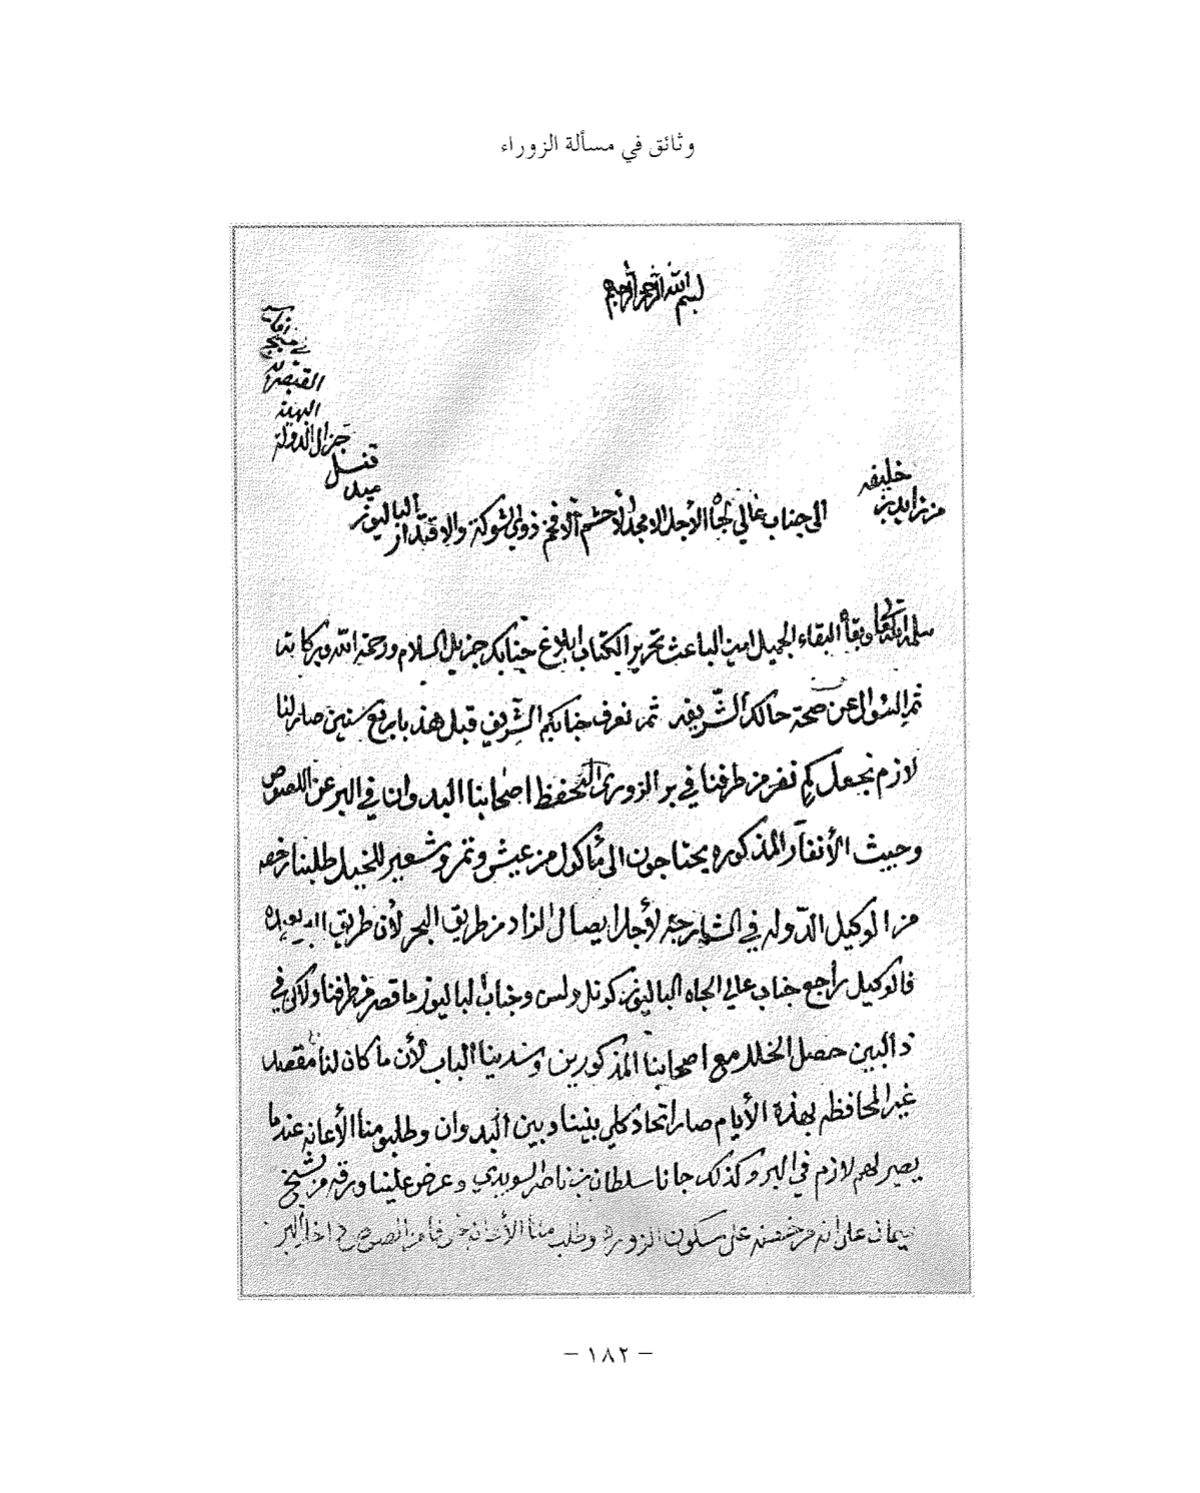 وثائق في مسألة الزوراء
بسم الله الرحمن الرحيم
من زايد بن خليفه
الى جناب عالي الجاه الأجل الامجد الأحشم الأفخم ذوي الشوكة والاقتدار الباليوز
قنسل
جنرال الدولة
البهية
القيصرية
في خليج
سلمه الله تعالى وبقاه البقاء الجميل امين الباعث تحرير الكتاب ابلاغ جنابك جزيل السلام ورحمة الله وبركاته
ثم السؤال عن صحة حالك الشريفه ثم نعرف جنابكم الشريف قبل هذه باربع سنين صار لنا
لازم نجعل كم نفر من طرفنا في بر الزوري لتحفظ اصحابنا البدوان في البر عن اللصوص
وحيث الأنفار المذكوره يحتاجون الى مأكول من عيش وتمر وشعير للخيل طلبنا رخصه
من الوكيل الدوله في الشارجة لأجل ايصال الزاد من طريق البحر لأن طريق البر بعيده
فالوكيل راجع جناب عالي الجاه الباليوز كونل ولسن وجناب الباليوز ما قصر من طرفنا ولاكن في
ذا البين حصل الخلل مع اصحابنا المذكورين وسدينا الباب لأن ما كان لنا مقصد
غير المحافظه بهذه الأيام صار اتحاد كلي بيننا وبين البدوان وطلبو منا الأعانه عندما
يصير لهم لازم في البر وكذلك جانا سلطان بن ناصر السويدي وعرض علينا ورقه من الشيخ
على انه مرخصنه على سكون الزوره وطلب منا الأعانه اللصوص داخل البر
– ١٨٢ –